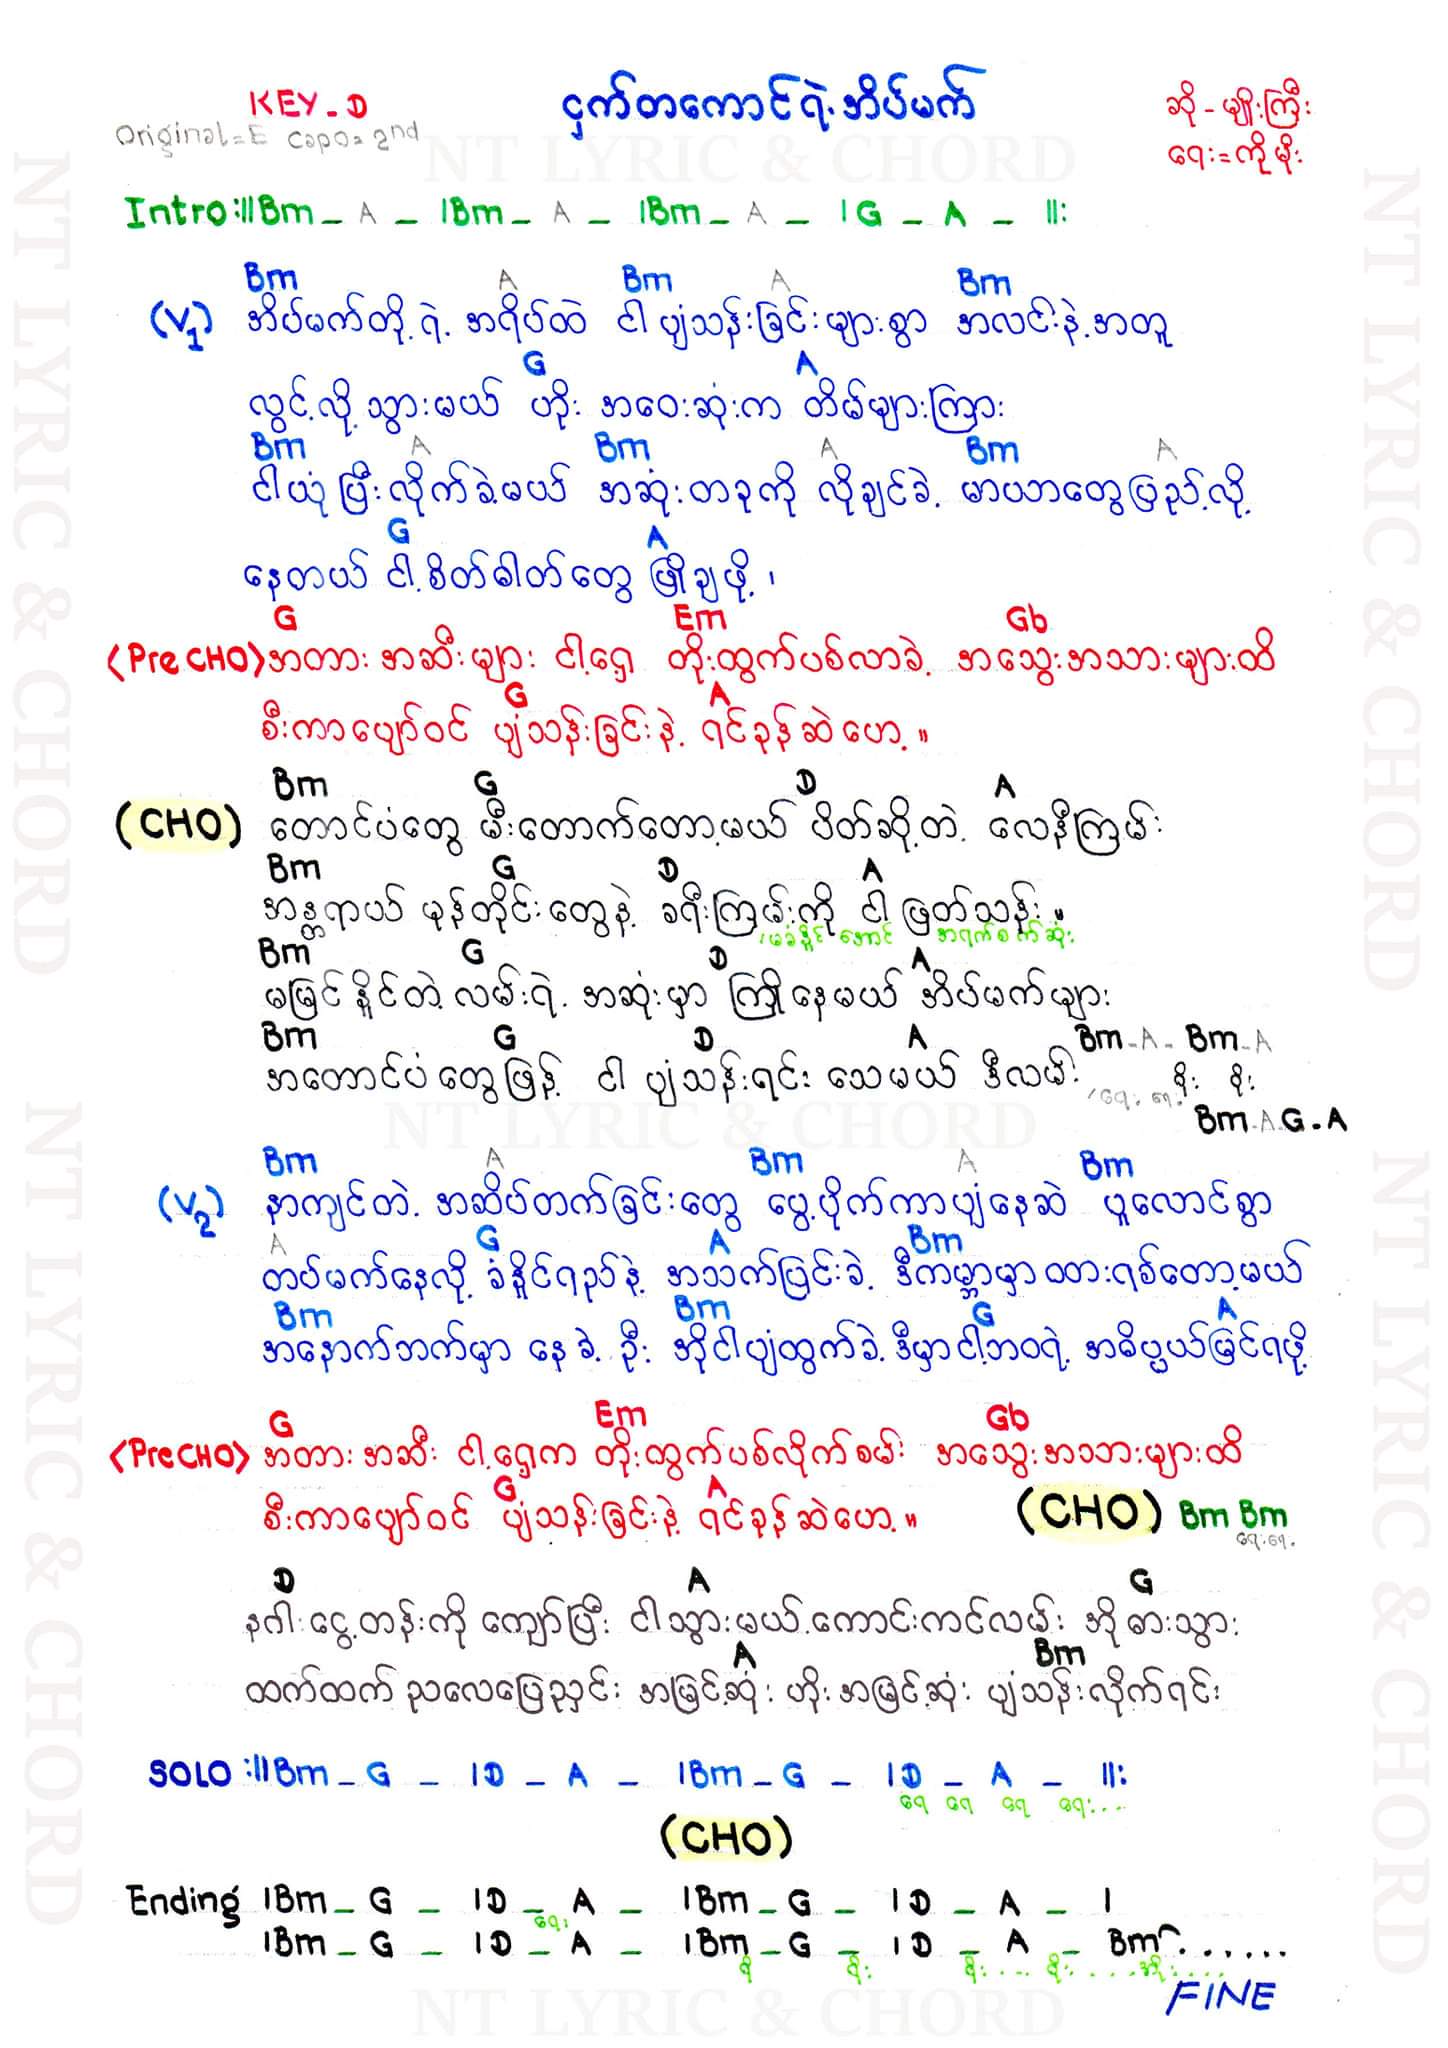 KEY - D
ငှက်တကောင်ရဲ့အိပ်မက်
ဆို - မျိုးကြီး
Original = E Capo = 2nd
ရေး = ကိုမိုး
NT LYRIC & CHORD
Intro :||Bm - A - |Bm - A - |Bm - A - |G - A - ||:
Bm A Bm A Bm
(V1) အိပ်မက်တို့ရဲ့ အရိပ်ထဲ ငါ ပျံသန်းခြင်းများစွာ အလင်းနဲ့အတူ
G A
လွင့်လို့သွားမယ် ဟိုး အဝေးဆုံးက တိမ်များကြား
Bm A Bm A Bm A
ငါယုံပြီးလိုက်ခဲ့မယ် အဆုံးတခုကို လိုချင်ခဲ့ မာယာတွေပြည့်လို့
G A
နေတယ် ငါ့စိတ်ဓါတ်တွေ ဖြိုချဖို့ ၊
G Em Gb
(Pre CHO) အတားအဆီးများ ငါ့ရှေ့ တိုးထွက်ပစ်လာခဲ့ အသွေးအသားများထိ
G A
စီးကာပျော်ဝင် ပျံသန်းခြင်းနဲ့ ရင်ခုန်ဆဲဟေ့ ။
Bm G D A
(CHO) တောင်ပံတွေ မီးတောက်တော့မယ် ပိတ်ဆို့တဲ့ လေနီကြမ်း
Bm G D A
အန္တရာယ် မုန်တိုင်းတွေနဲ့ ခရီးကြမ်းကို ငါ ဖြတ်သန်း ။
Bm G D A
မမြင်နိုင်တဲ့လမ်းရဲ့ အဆုံးမှာ ကြိုနေမယ် အိပ်မက်များ
Bm G D A Bm - A - Bm - A
အတောင်ပံတွေဖြန့် ငါ ပျံသန်းရင်း သေမယ် ဒီလမ်း
Bm - A - G - A
Bm A Bm A Bm
(V2) နာကျင်တဲ့ အဆိပ်တက်ခြင်းတွေ ပွေ့ပိုက်ကာပျံနေဆဲ ပူလောင်စွာ
A G A Bm
တပ်မက်နေလို့ ခံနိုင်ရည်နဲ့ အသက်ပြင်းခဲ့ ဒီကမ္ဘာမှာ ထားရစ်တော့မယ်
Bm Bm G A
အနောက်ဘက်မှာ နေခဲ့ ဦး အိုငါပျံထွက်ခဲ့ ဒီမှာငါ့ဘဝရဲ့ အဓိပ္ပယ်မြင်ရဖို့
G Em Gb
(Pre CHO) အတားအဆီး ငါ့ရှေ့က တိုးထွက်ပစ်လိုက်စမ်း အသွေးအသားများထိ
G A
စီးကာပျော်ဝင် ပျံသန်းခြင်းနဲ့ ရင်ခုန်ဆဲဟေ့ ။ (CHO) Bm Bm
D A G
နဂါးငွေ့တန်းကို ကျော်ပြီး ငါသွားမယ် ကောင်းကင်လမ်း အိုဓားသွား
A Bm
ထက်ထက် ညလေပြေညှင်း အမြင့်ဆုံး ဟိုးအမြင့်ဆုံး ပျံသန်းလိုက်ရင်း
SOLO :||Bm - G - |D - A - |Bm - G - |D - A - ||:
(CHO)
Ending |Bm - G - |D - A - |Bm - G - |D - A - |
|Bm - G - |D - A - |Bm - G - |D - A - Bm ......
FINE
NT LYRIC & CHORD